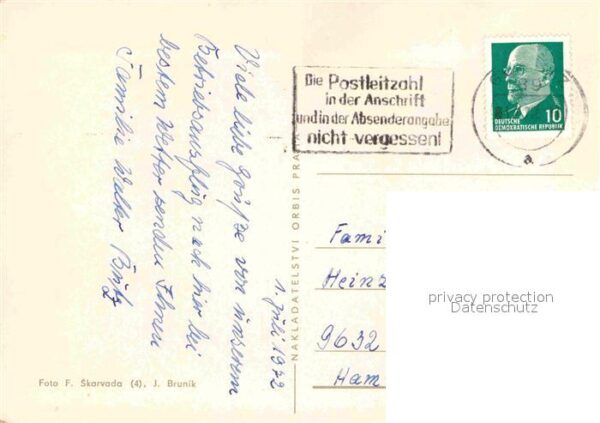 1. Juli 1972
Viele liebe Grüße von unserem
Betriebsausflug nach hier bei
bestem Wetter senden Ihnen
Familie Walter
Foto F. Škarvada (4), J. Bruník
NAKLADATELSTVÍ ORBIS PRA
Die Postleitzahl
in der Anschrift
und in der Absenderangabe
nicht vergessen!
10
DEUTSCHE
DEMOKRATISCHE REPUBLIK
a
Fami
Heinz
9632
Ham
privacy protection
Datenschutz